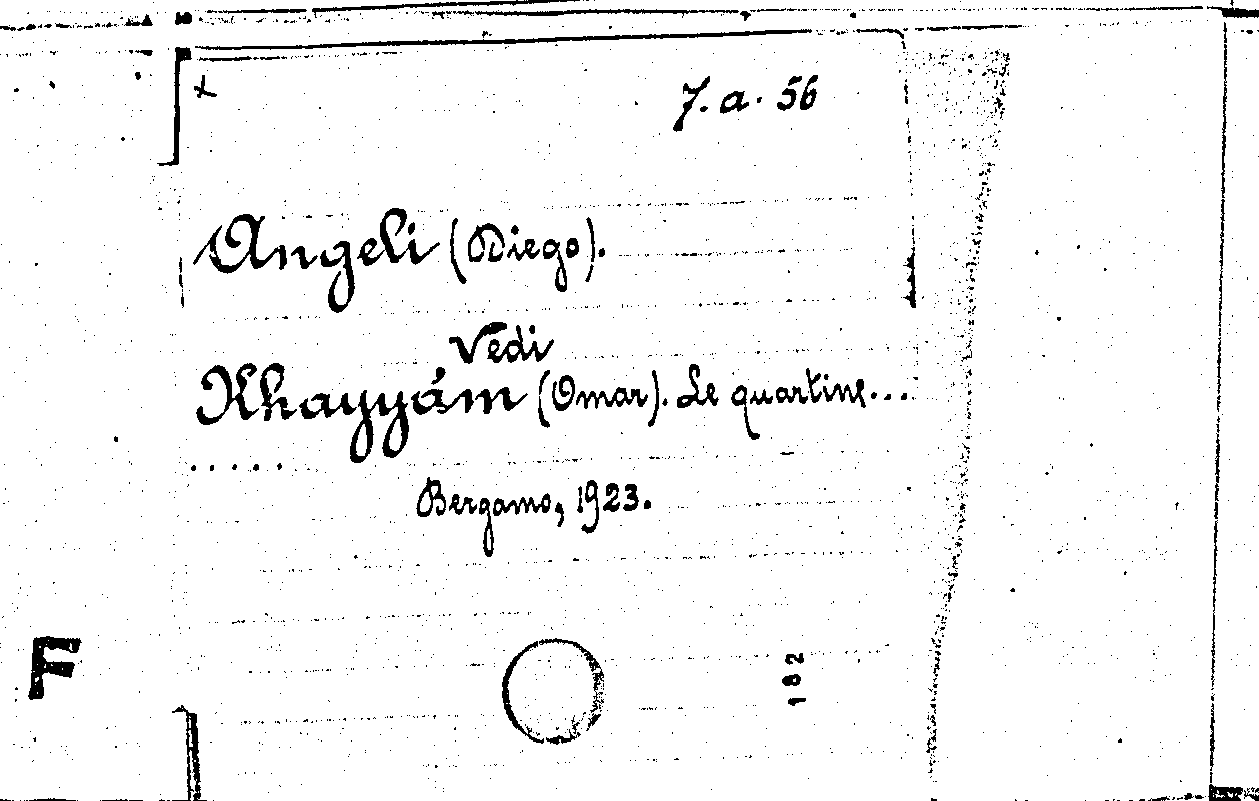 x
7. a. 56
Angeli (Diego).
Vedi
Khayyám (Omar). Le quartine...
.....
Bergamo, 1923.
F
182